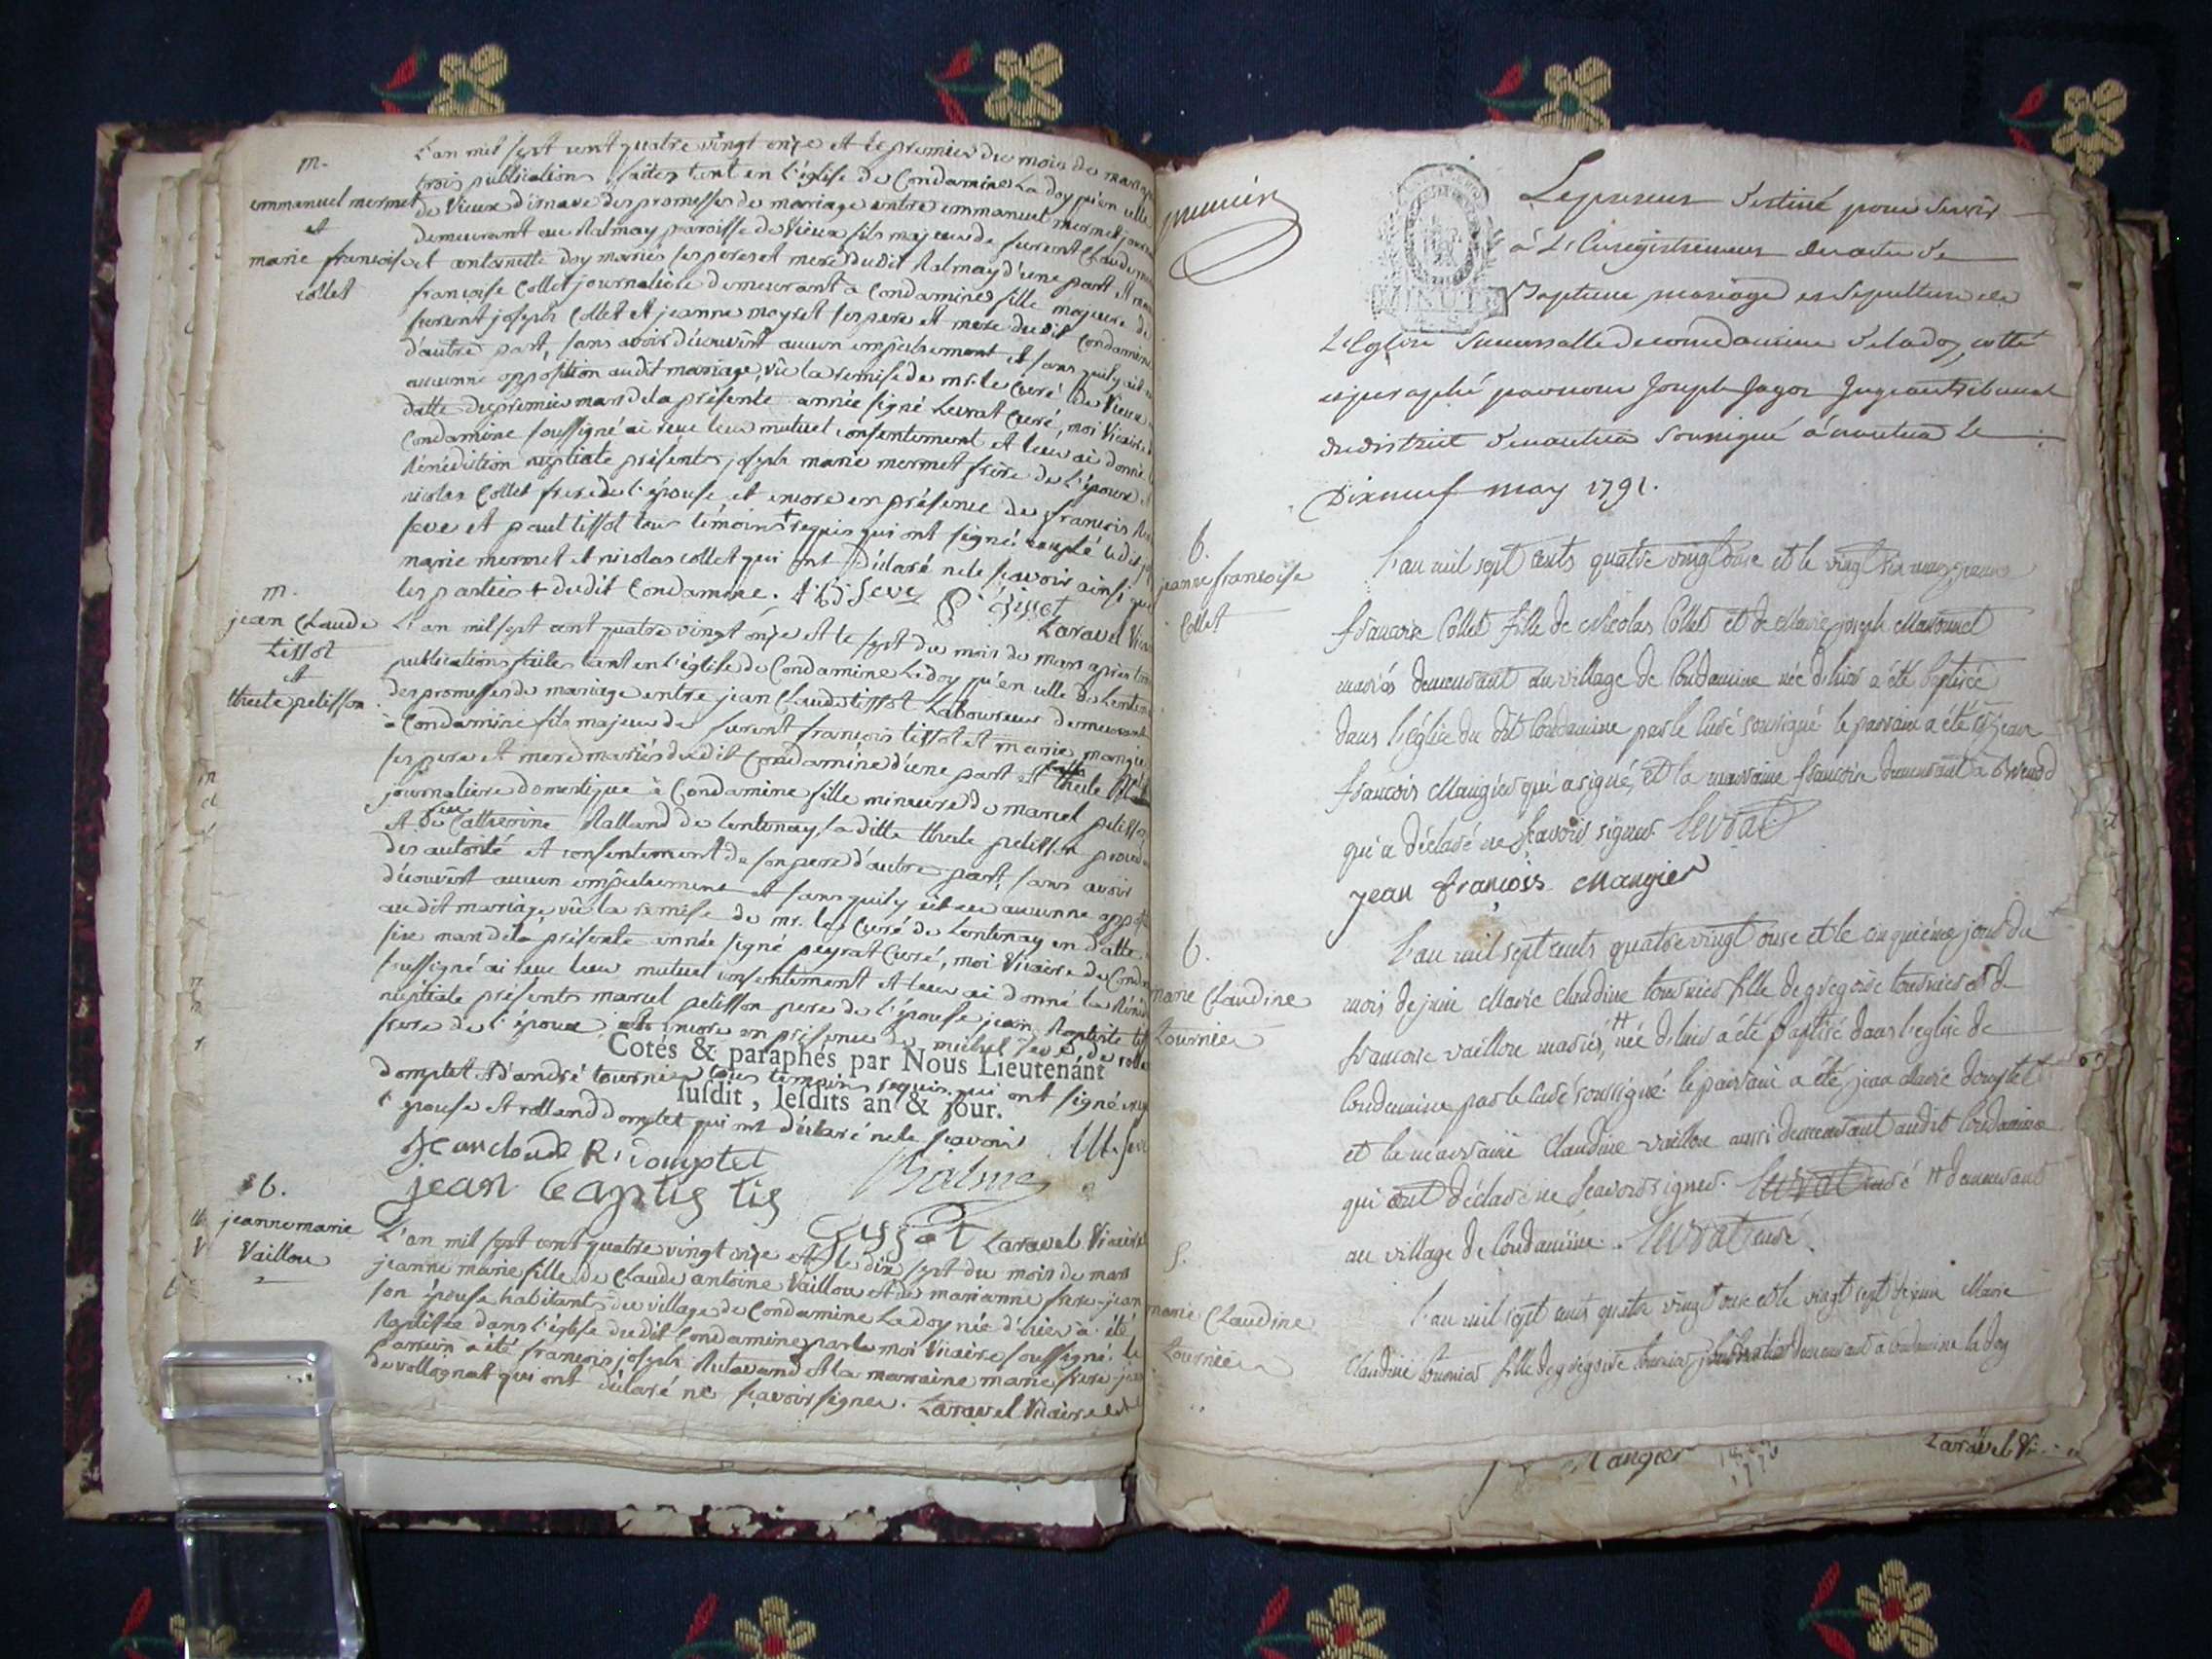 m.
emmanuel mermet
et
marie francoise
collet
L'an mil sept cent quatre vingt onze et le premier du mois de mars
trois publications faites tant en l'église de Condamine La doy qu'en celle
de Vieux d'isnave des promesses de mariage entre emmanuel mermet
demeurant au Balmay paroisse de Vieux fils majeur de furent Claude
et antoinette doy mariés ses pere et mere dudit Balmay d'une part et
francoise Collet journaliere demeurant a Condamine fille majeure de
furent joseph Collet et jeanne ses pere et mere dudit Condamine
d'autre part, sans avoir découvert aucun empêchement et sans quil y ait
aucunne opposition audit mariage, vû la remise de mr. le Curé de Vieux
datte du premier mars de la présente année signé Levrat Curé, moi Vicaire
Condamine soussigné ai reçu leur mutuel consentement et leur ai donné
Bénédiction nuptiale présents joseph marie mermet frère de l'époux
nicolas Collet frere de l'épouse et encore en présence de francois
seve et paul tissot tous témoins + requis qui ont signé
marie mermet et nicolas collet qui ont déclaré ne le scavoir ainsi que
les parties + dudit Condamine. Seve P. tissot
Laravel
m.
jean Claude
tissot
et
thecle pelisson
L'an mil sept cent quatre vingt onze et le sept du mois de mars après
publications faites tant en l'église de Condamine La doy qu'en celle de Lentenay
des promesses de mariage entre jean Claude tissot Laboureur demeurant
à Condamine fils majeur de furent francois tissot et marie
ses pere et mere mariés dudit Condamine d'une part et thecle
journaliere domestique à Condamine fille mineure de marcel pelisson
et de feue Catherine Balland de Lentenay la ditte thecle pelisson
des autorité et consentement de son pere d'autre part, sans avoir
découvert aucun empêchement et sans quil y ait eu aucunne
audit mariage, vû la remise de mr. le Curé de Lentenay en datte
six mars de la présente année signé peyrat Curé, moi Vicaire de
soussigné ai reçu leur mutuel consentement et leur ai donné la
nuptiale présents marcel pelisson pere de l'épouse jean Baptiste
frere de l'époux et encore en présence de michel seve, de
Cotés & paraphés par Nous Lieutenant
domptet et d'andré tournier tous temoins requis qui ont signé
susdit, lesdits an & jour.
épouse et rolland domptet qui ont déclaré ne le scavoir
jean claude R. domptet
jean baptis tis
Laravel Vicaire
b.
jeanne marie
Vaillou
L'an mil sept cent quatre vingt onze et le dix sept du mois de mars
jeanne marie fille de Claude antoine Vaillou et de marianne frere-jean
son épouse habitants du village de Condamine La doy née d'hier a été
Baptisée dans l'église dudit Condamine par moi Vicaire soussigné. le
parrain a été francois joseph et la marraine marie frere-
de vollognat qui ont déclaré ne scavoir signer. Laravel Vicaire
premier
MINUTE
Le present destiné pour servir
à L'Enregistrement des actes de
Baptême mariage et Sepulture de
L'Eglise Succursalle de condamine de la doy, cotté
et paraphé par nous Joseph Jagot Juge au tribunal
du district de nantua soussigné à nantua le
Dix neuf may 1791.
b.
jeanne francoise
Collet
L'an mil sept cents quatre vingt onze et le vingt
francoise Collet fille de Nicolas Collet et de Marie joseph
mariés demeurant au village de Condamine née d'hier a été baptisée
dans l'église du dit Condamine par le Curé soussigné. le parrain a été jean
francois Mangier qui a signé, et la marraine francoise demeurant a
qui a déclaré ne scavoir signer. Levrat
jean francois Mangier
b.
marie Claudine
tournier
L'an mil sept cents quatre vingt onze et le cinquième jour du
mois de juin Marie Claudine tournier fille de gregoire tournier et de
francoise vaillou mariés, # née d'hier a été baptisé dans l'église de
Condamine par le Curé soussigné. le parrain a été jean Marie domptet
et la marraine Claudine vaillou aussi demeurant audit Condamine
qui ont déclaré ne scavoir signer. Levrat curé # demeurant
au village de Condamine. Levrat curé.
S.
marie Claudine
tournier
L'an mil sept cents quatre vingt onze et le vingt sept de juin Marie
Claudine tournier fille de gregoire tournier demeurant a Condamine la doy
Mangier
Laravel